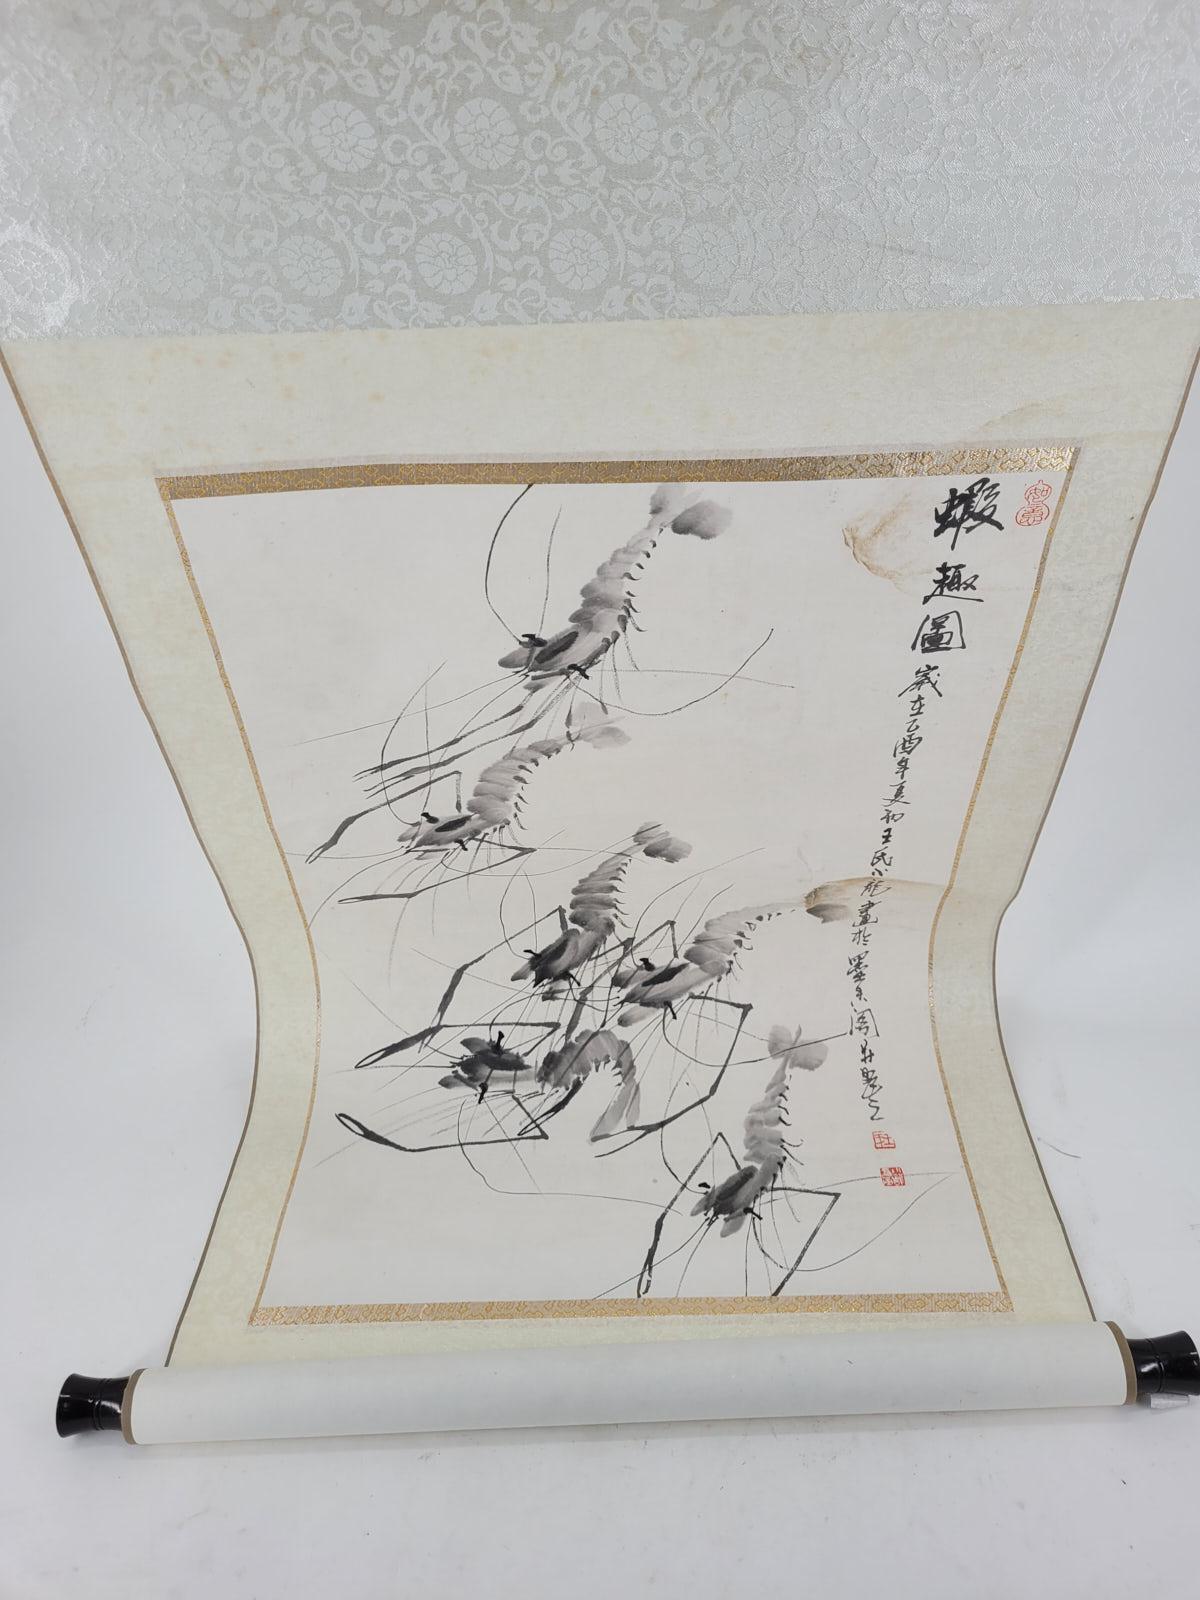 蝦趣圖
歲在乙酉年夏初王氏小龍畫於墨香閣